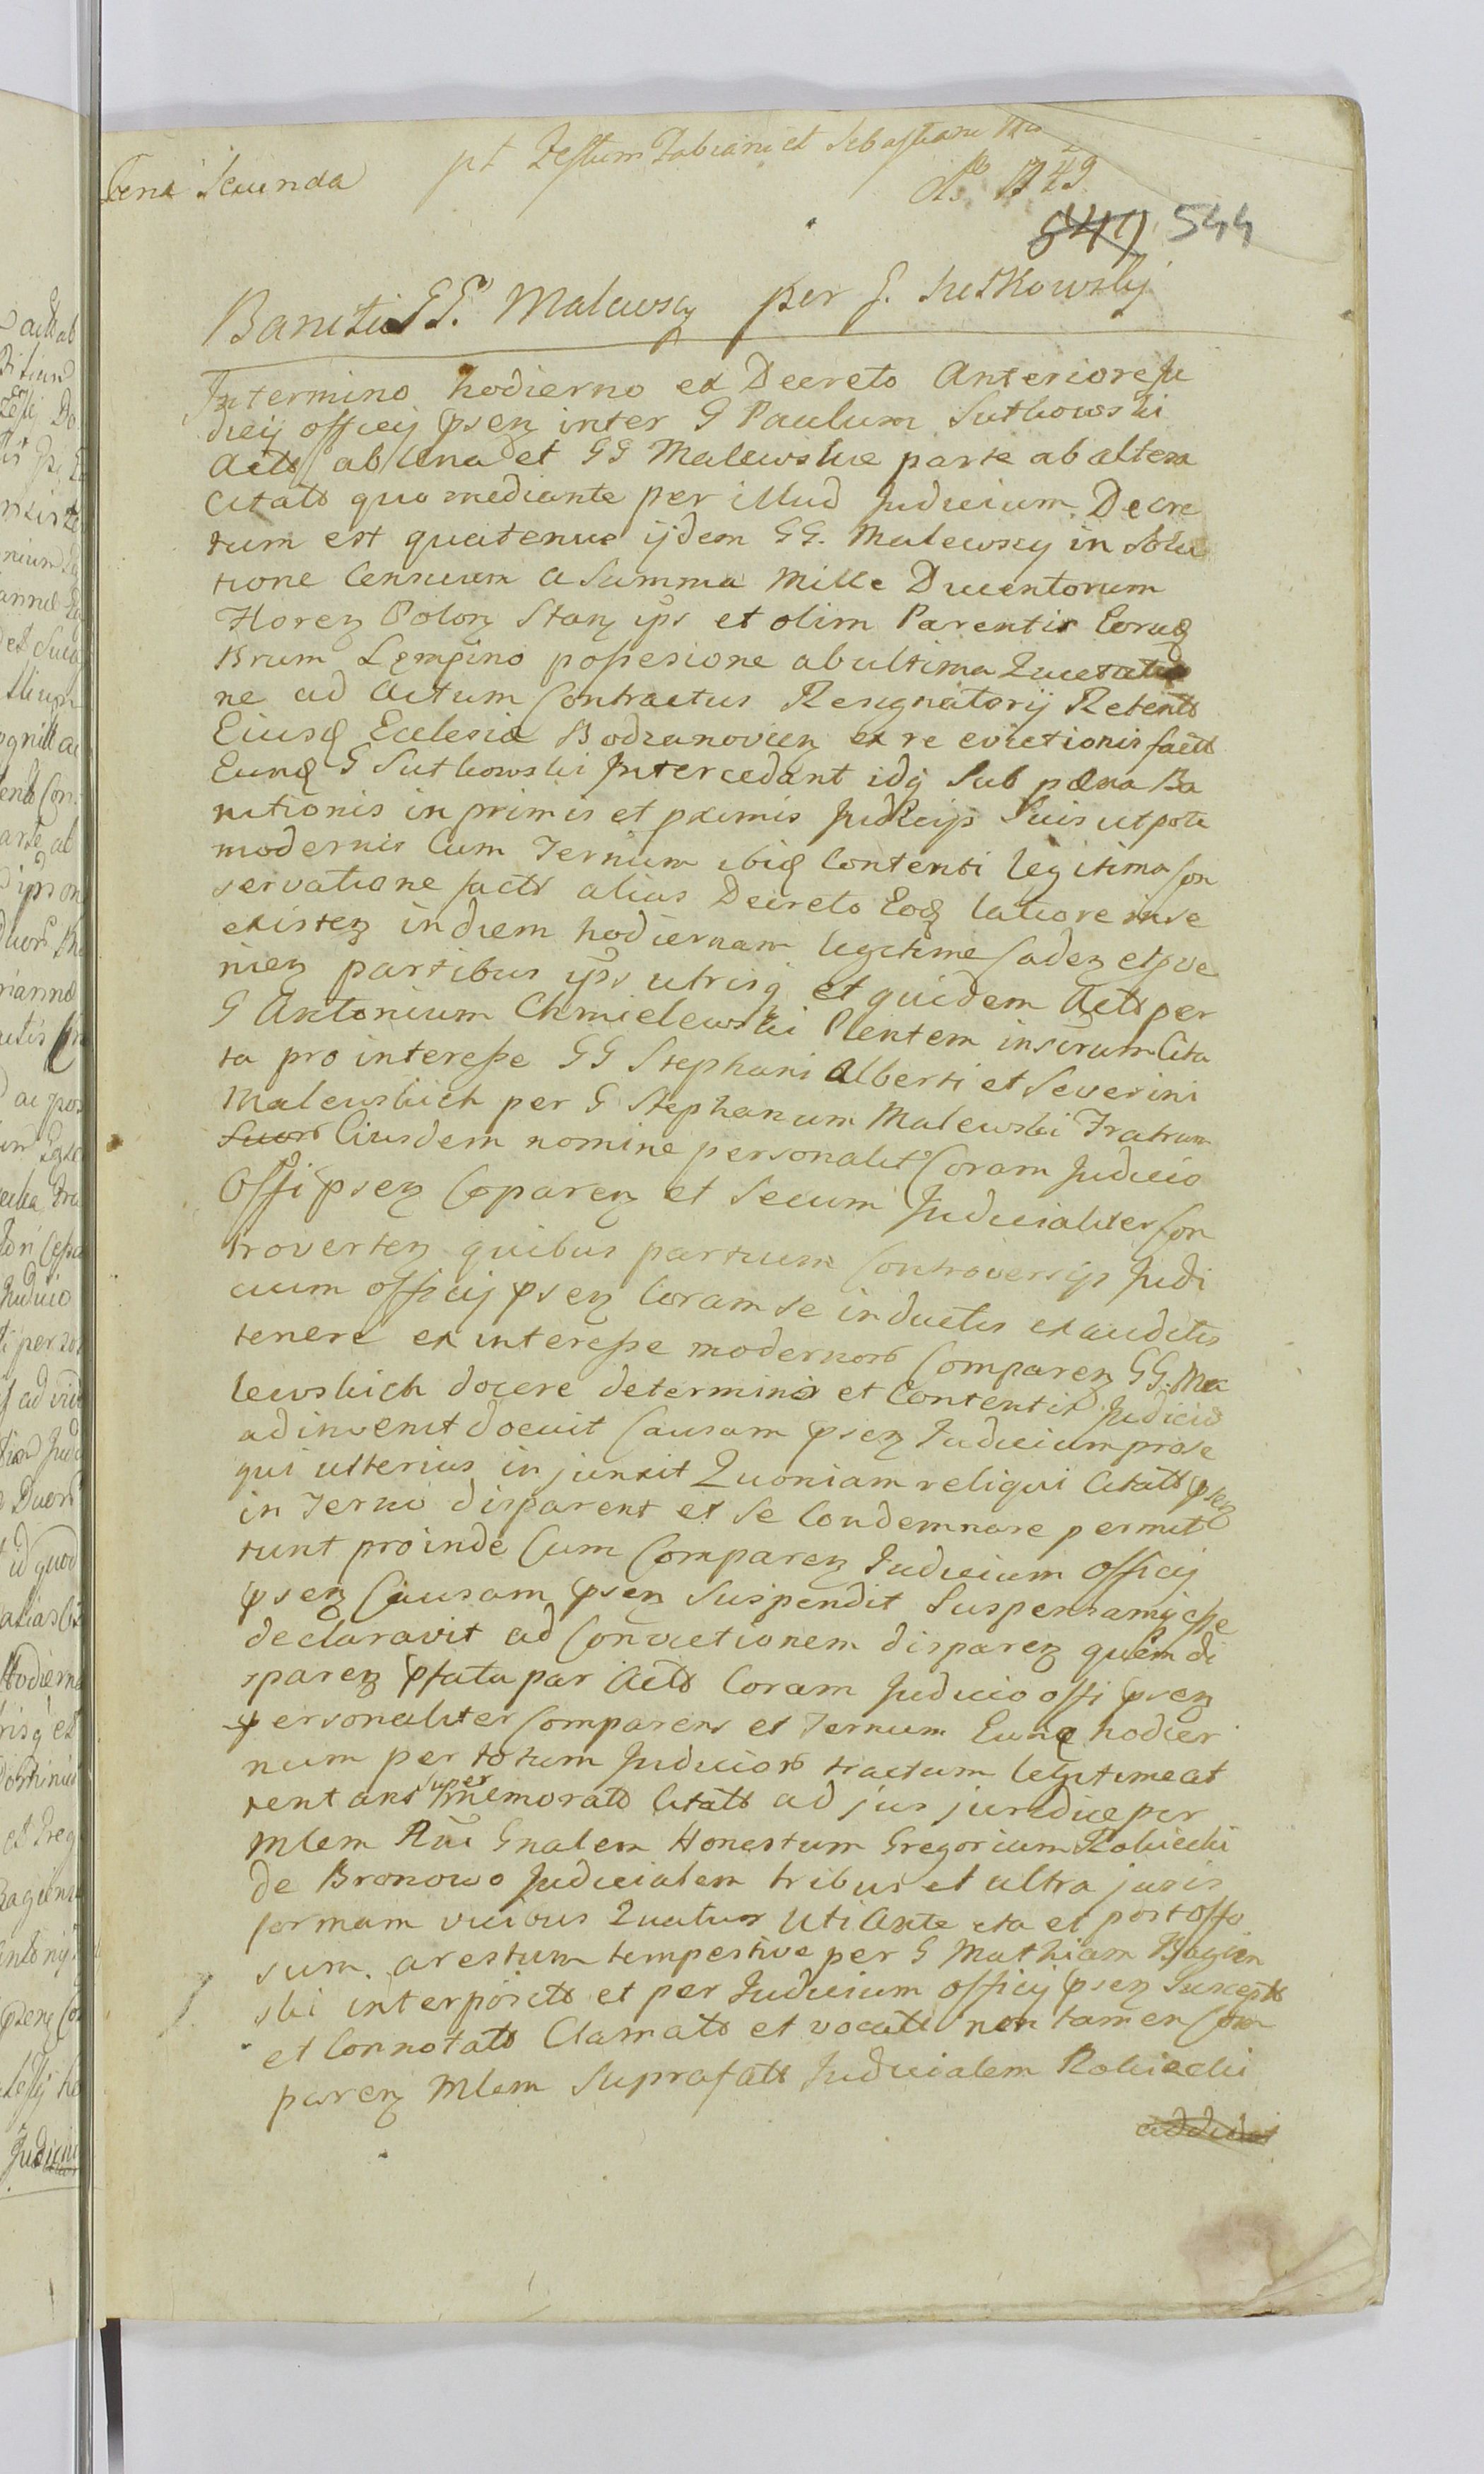 Feria Secunda pt Festum Fabiani et Sebastiani Mm
Ao 1749
544
Banitio GG. Malewscy per G. Sutkowskij
In termino hodierno ex Decreto Anteriore Ju
dicij officij psen inter G Paulum Sutkowski
Acto ab una et GG Malewskie parte ab altera
Citato quo mediante per illud Judicium Decre
tum est quatenus ijdem GG. Malewscy in Solu
tione Censuum a Summa Mille Ducentorum
Floren Polon Stan ips et olim Parentis Eorud
Brum Lempino possesione ab ultima
ne ad Actum Contractus Resignatorij Retento
Eiusd Ecclesia Bodzanovien ex re evictionis facto
Eund G Sutkowski Intercedant idq Sub pæna Ba
nitionis in primis et proximis Judicijs Suis ut pote
modernis Cum Ternum ibid Contenti legitima Con
servatione facto alias Decreto Eod latiore in se
existen in diem hodiernam legitime Caden et pve
nien partibus ips utrisq et quidem Acto per
G Antonium Chmielewski Plentem inscrum Cita
ta pro interesse GG Stephani Alberti et Severini
Malewskich per G Stephanum Malewski Fratrum
Suor Eiusdem nomine personalit Coram Judicio
Offi psen Coparen et Secum Judicialiter Con
troverten quibus partium Controversijs Judi
cium officij psen Coram se inductis et auditis
tenere ex interesse modernor Comparen GG. Ma
lewskich docere de terminis et Contentis Judicio
adinvenit docuit Causam psen Judicium prose
qui ulterius injunxit Quoniam religui Citato psen
in Terno disparent et se Condemnare permit
tunt proinde Cum Comparen Judicium officij
psen Causam psen Suspendit Suspensamq esse
declaravit ad Convictionem disparen quem di
sparen pfata par Acto Coram Judicio offi psen
personaliter Comparens et Ternum Eund hodier
num per totum Judicior tractum legitime at
tentans super memorato Citato ad jus juredice per
Mlem Rni Gnalem Honestum Gregorium Robiecki
de Bronowo Judicialem tribus et ultra juris
formam vicibus Quatuor Uti Ante ita et post offo
sum arestum tempestive per G Mathiam Bagien
ski interposito et per Judicium officij psen Suscepto
et Connotato Clamato et vocato non tamen Com
paren Mlem Suprafato Judicialem Robiecki